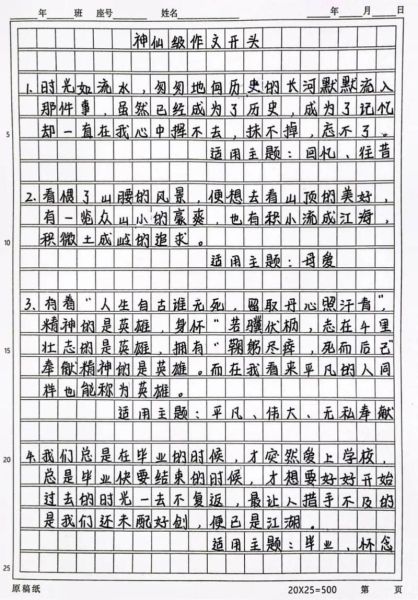 年 班 座号 姓名 年 月 日
神仙级作文开头
1. 时光如流水，匆匆地向历史的长河默默流入
那件事，虽然已经成为了历史，成为了记忆
5
却一直在我心中挥不去，抹不掉，忘不了。
适用主题：回忆、往昔
2. 看惯了山腰的风景，便想去看山顶的美好，
有一览众山小的豪爽，也有积小流成江海，
10
积微土成岐的追求。
适用主题：母爱
3. 有着“人生自古谁无死，留取丹心照汗青”
精神的是英雄，身怀“若骥伏枥，志在千里
15
壮志的是英雄，拥有“鞠躬尽瘁，死而后已”
奉献精神的是英雄。而在我看来平凡的人同
样也能称为英雄。
适用主题：平凡、伟大、无私奉献
20
4. 我们总是在毕业的时候，才突然爱上学校，
总是毕业快要结束的时候，才想要好好开始
过去的时光一去不复返，最让人措手不及的
是我们还未配好剑，便已是江湖。
适用主题：毕业、怀念
25
原稿纸 20X25=500 第 页